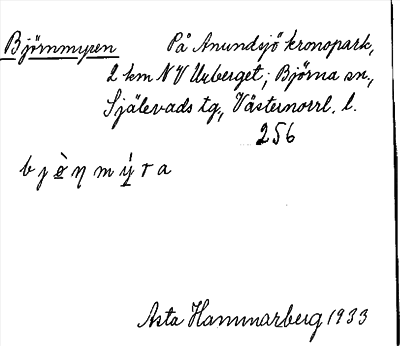 Björnmyren På Anundsjö kronopark,
2 km NV Urberget; Björna sn.,
Själevads tg., Västernorrl. l.
256
b j ö̀ ŋ m ý r a
Asta Hammarberg 1933